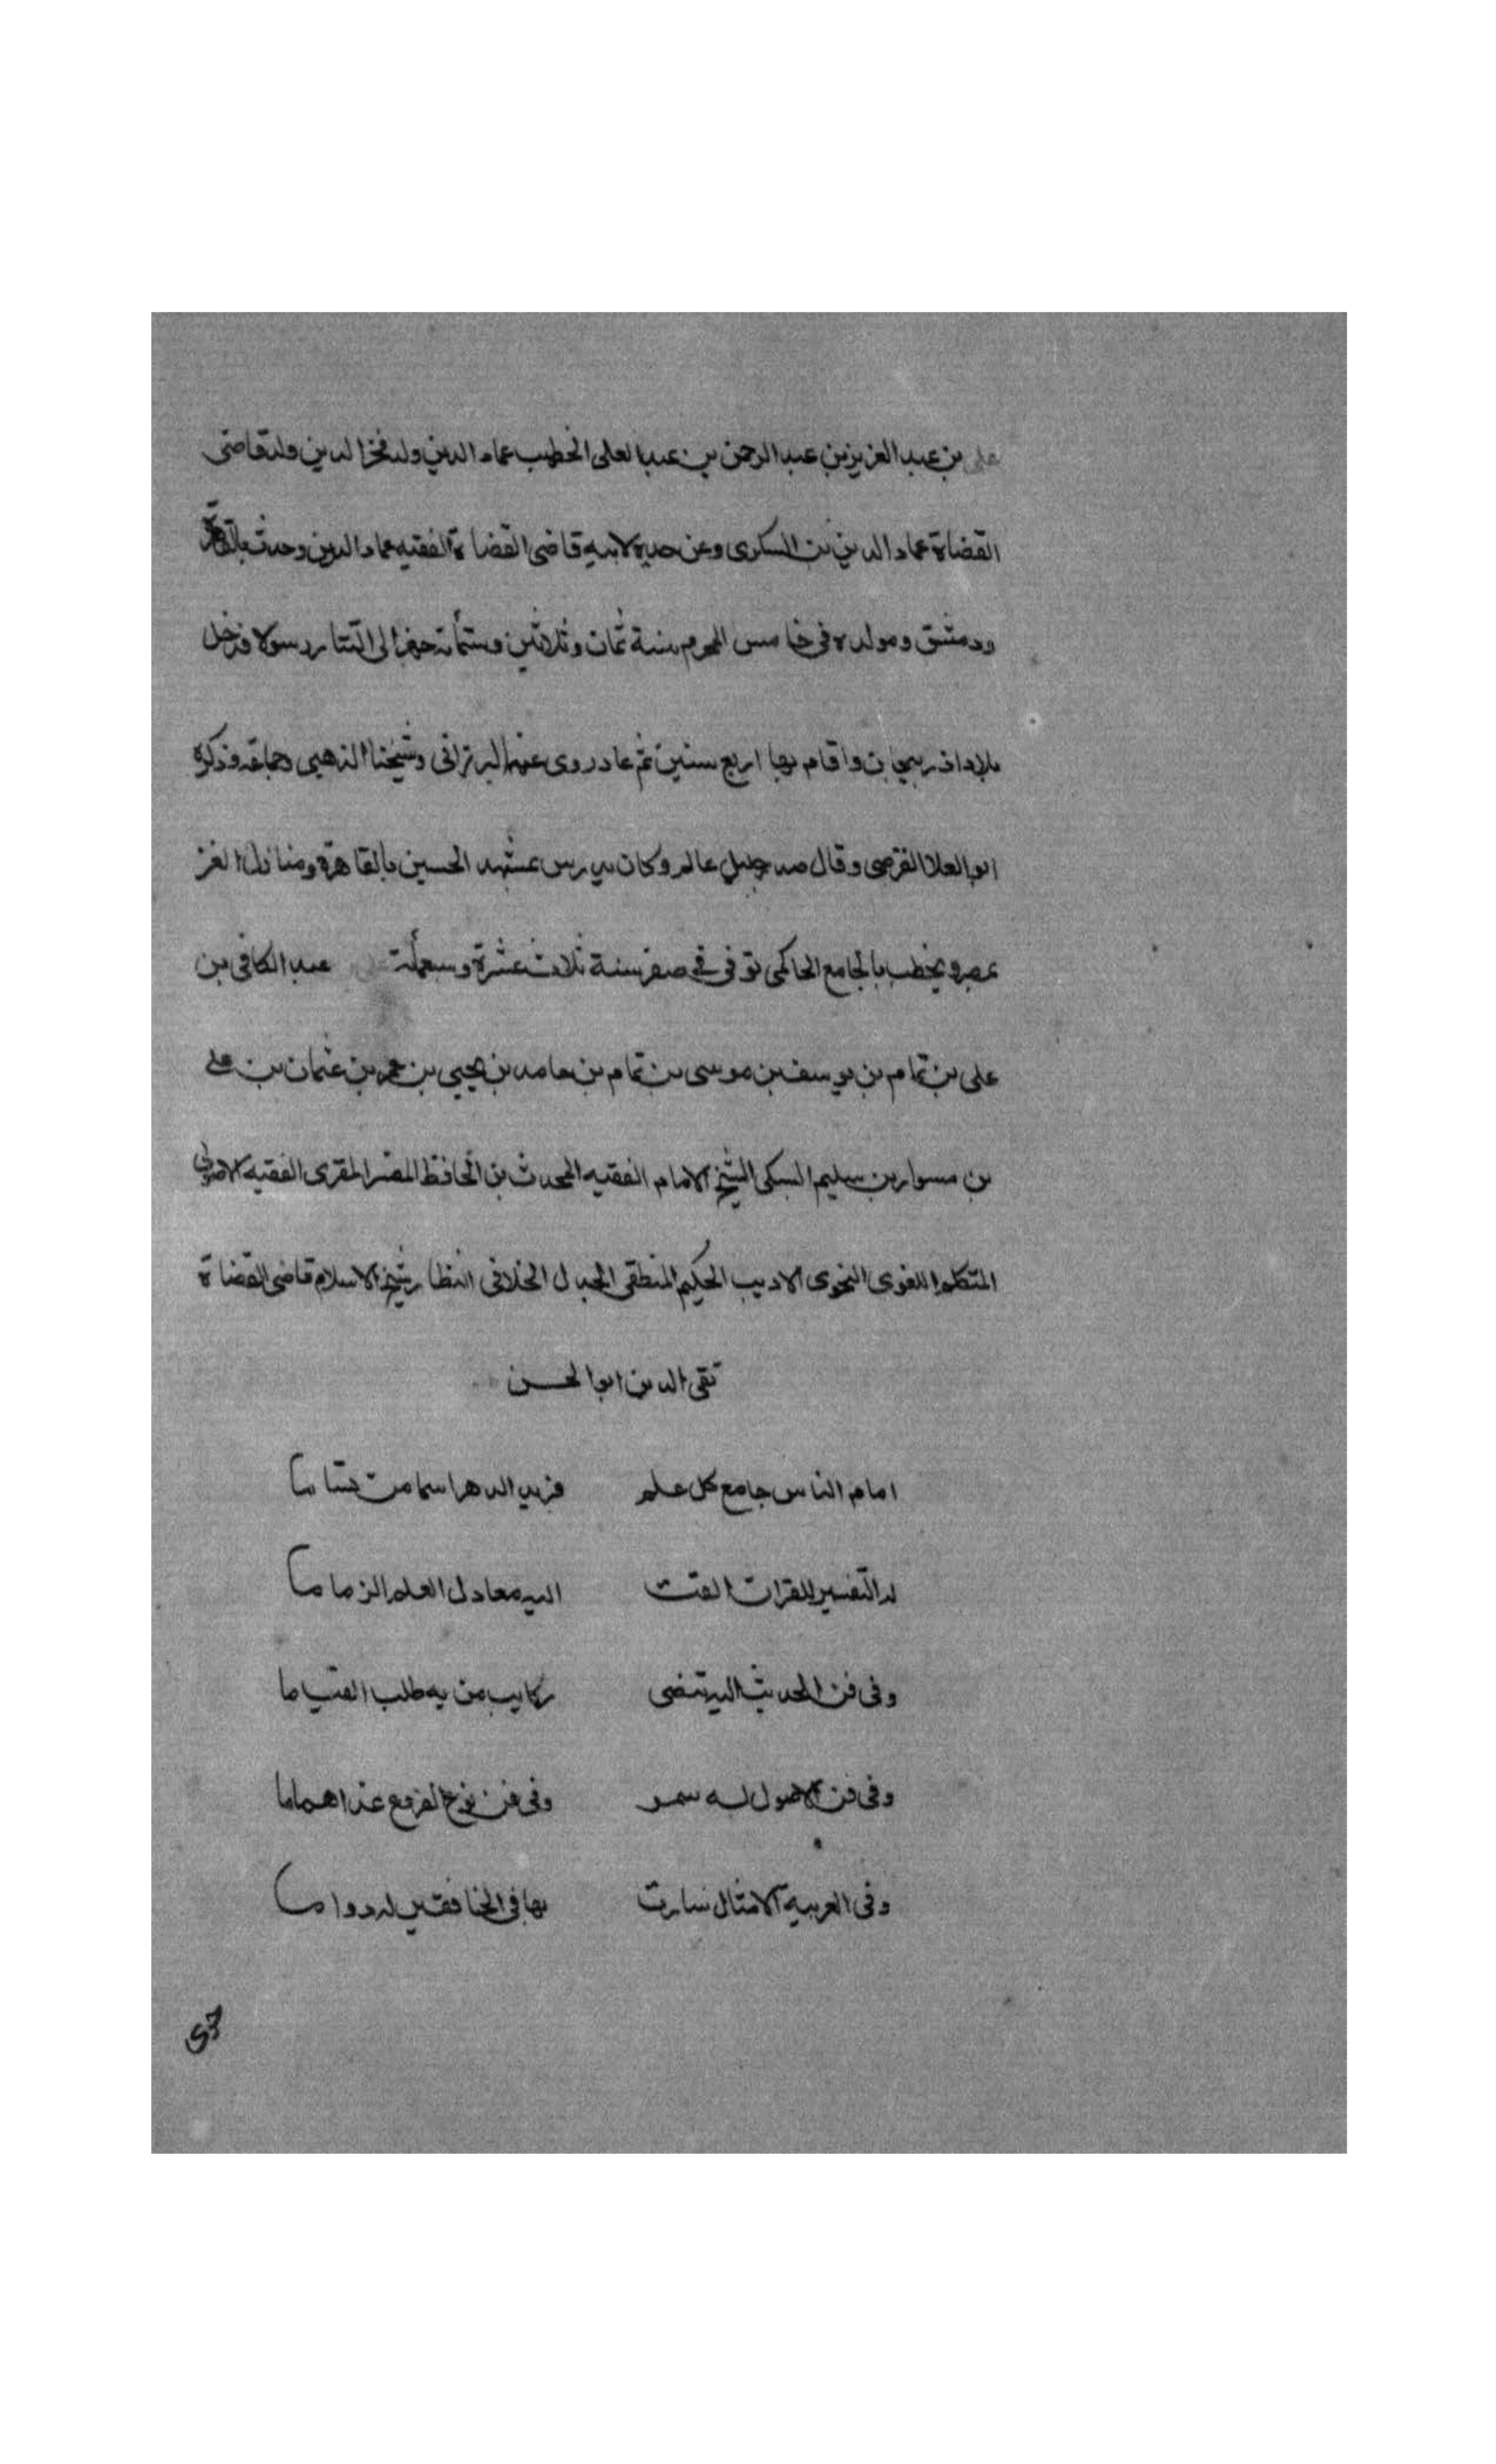 علي بن عبد العزيز بن عبد الرحمن بن عبد العلى الخطيب عماد الدين ولد فخر الدين ولد قاضى
القضاة عماد الدين بن السكرى وعن جده لابيه قاضى القضاة الفقيه عماد الدين وحدث بالقاهرة
ودمشق ومولده فى خامس المحرم سنة ثمان وثلاثين وستمأته جهز الى التتار رسولا فدخل
بلاد اذربيجان واقام بها اربع سنين ثم عاد روى عنه البرزانى وشيخنا الذهبى وجماعة وذكره
ابو العلا الفرضى وقال صدر جليل عالم وكان يدرس بمشهد الحسين بالقاهرة ومنازل العز
بمصر ويخطب بالجامع الحاكمى توفى فى صفر سنة ثلاث عشرة وسبعمأئة عبد الكافى بن
على بن تمام بن يوسف بن موسى بن تمام بن حامد بن يحيى بن عمر بن عثمان بن على
بن مسوار بن سليم السبكى الشيخ الامام الفقيه المحدث بن الحافظ المفسر المقرى الفقيه الاصولى
المتكلم اللغوى النحوى الاديب الحكيم المنطقى الجدل الخلافى النظار شيخ الاسلام قاضى القضاة
تقى الدين ابو الحسن
امام الناس جامع كل علم فريد الدهر اسما من تساما
له التفسير للقران القت اليه معادل العلم الزماما
وفى فن الحديث اليه تنضى ركايب من به طلب القياما
وفى فن الاصول له سمر وفى فن نوع الفروع غدا هماما
وفى العربية الامثال سارت بها فى الخافقين له دواما